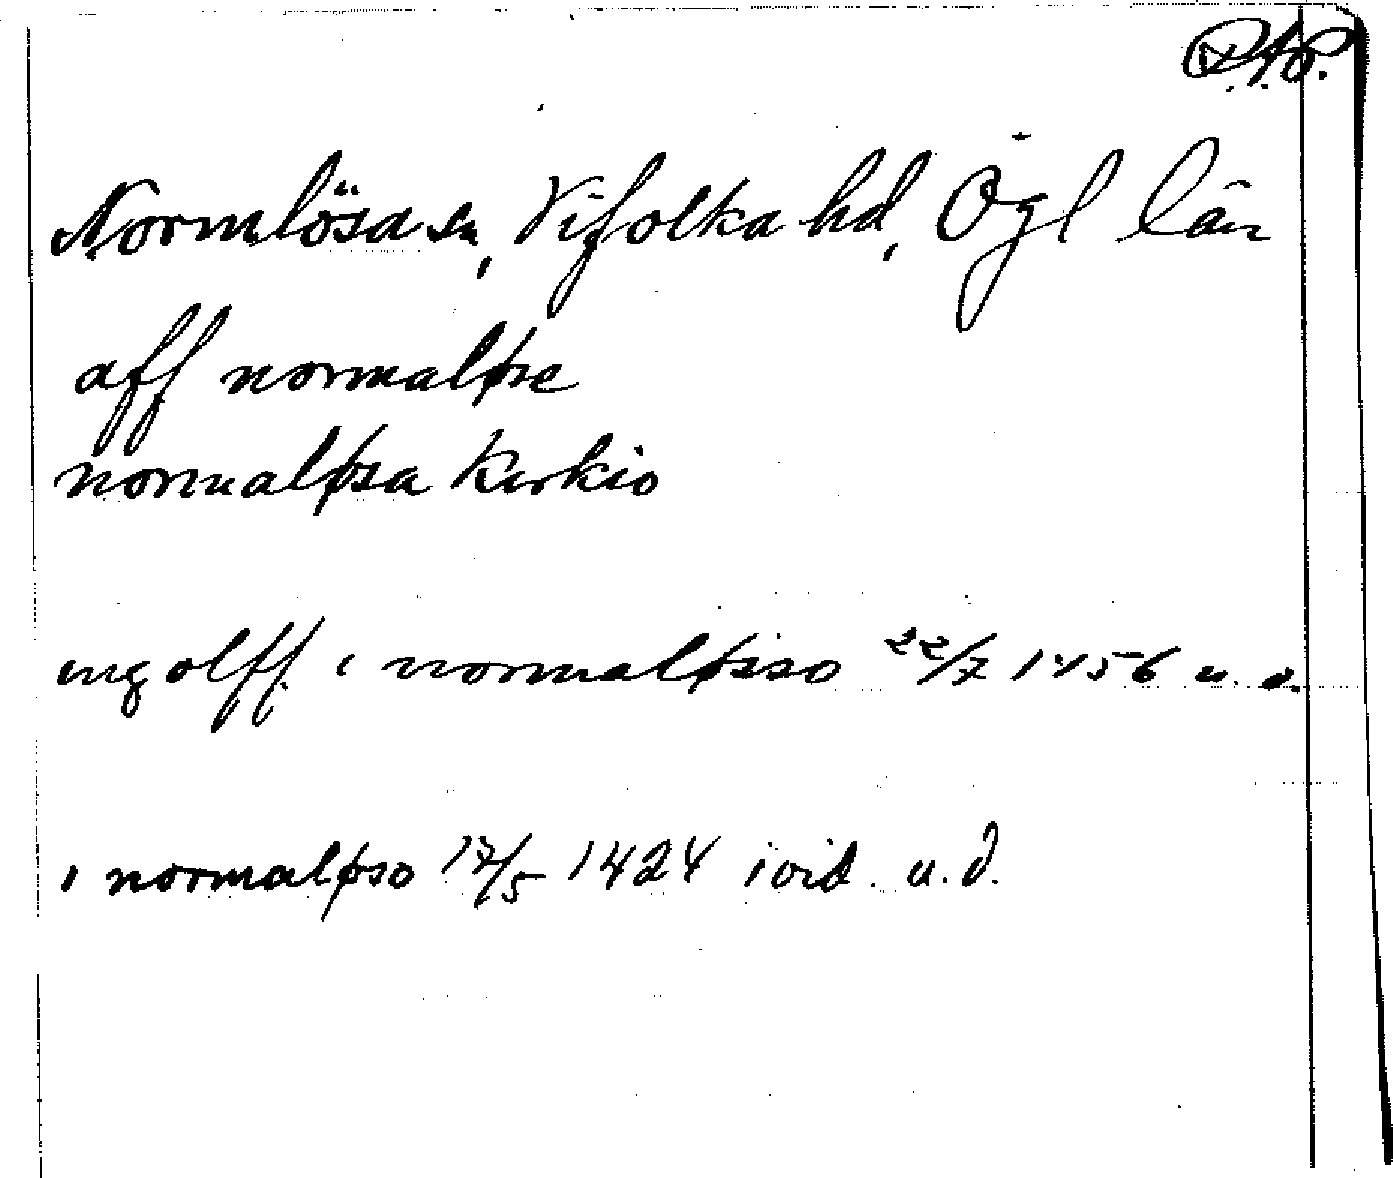 R.A.P.
Normlösa sn, Vifolka hd, Ögl län
aff normaløse
normaløsa kirkio
ingolff i normaløsso 22/7 1456 u. d.
i normaløso 17/5 1424 ibid. u. d.